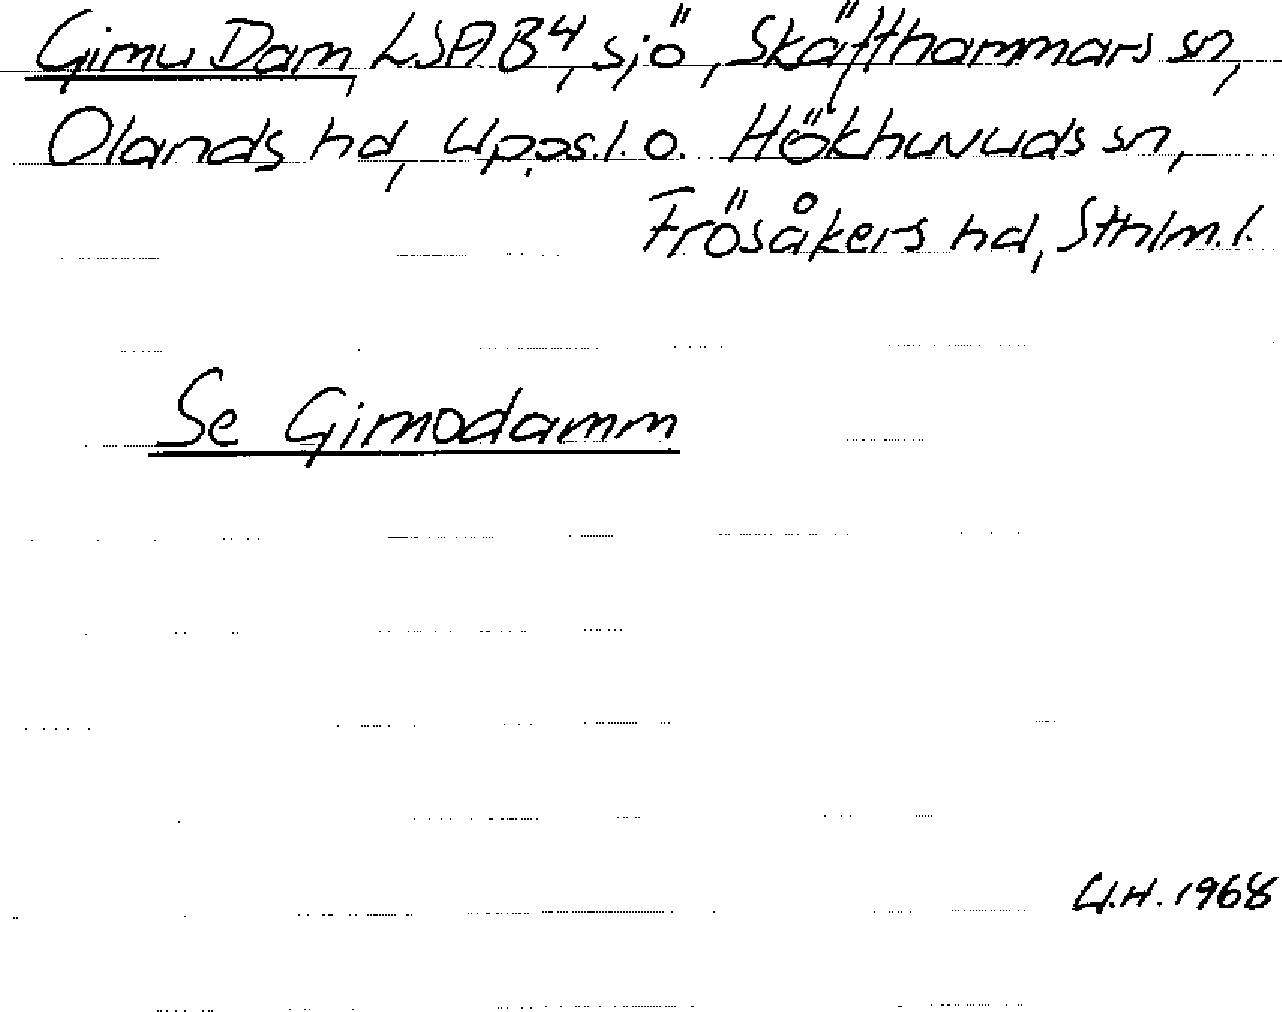 Gimu Dam, LSA B4, sjö, Skäfthammars sn,
Olands hd, Upps.l. o. Hökhuvuds sn,
Frösåkers hd, Sthlm.l.
Se Gimodamm
U.H. 1968